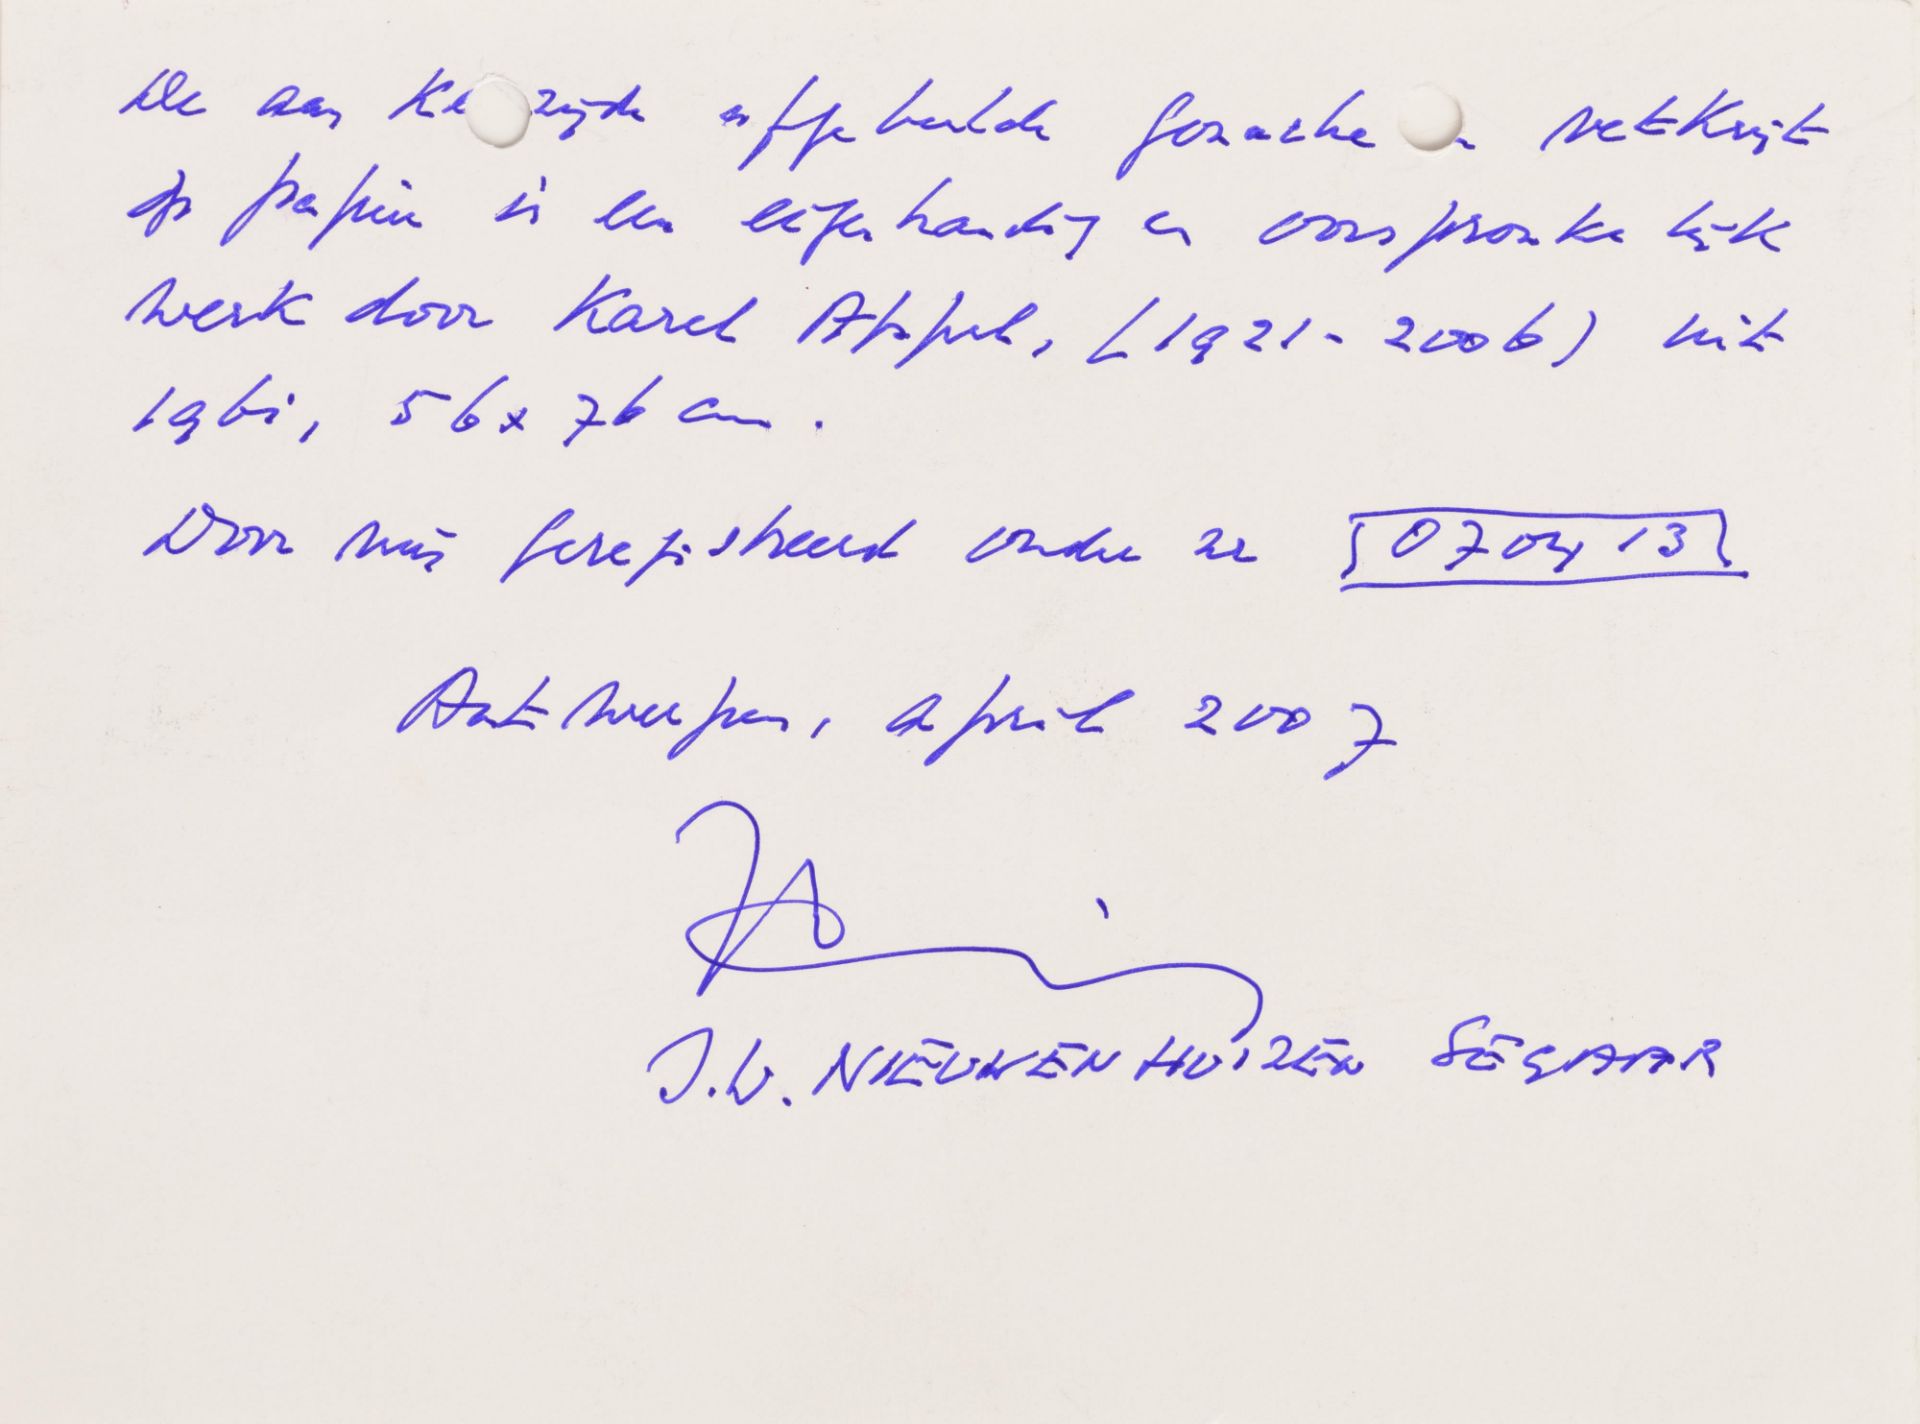 De aan ke zijde afgebeelde gouache vetkrijt
op papier is een eigenhandig en oorspronkelijk
werk door Karel Appel, (1921-2006) uit
1961, 56 x 76 cm.
Door mij geregistreerd onder nr 070413
Antwerpen, april 2007
J.W. NIEUWENHUIZEN SEGAAR